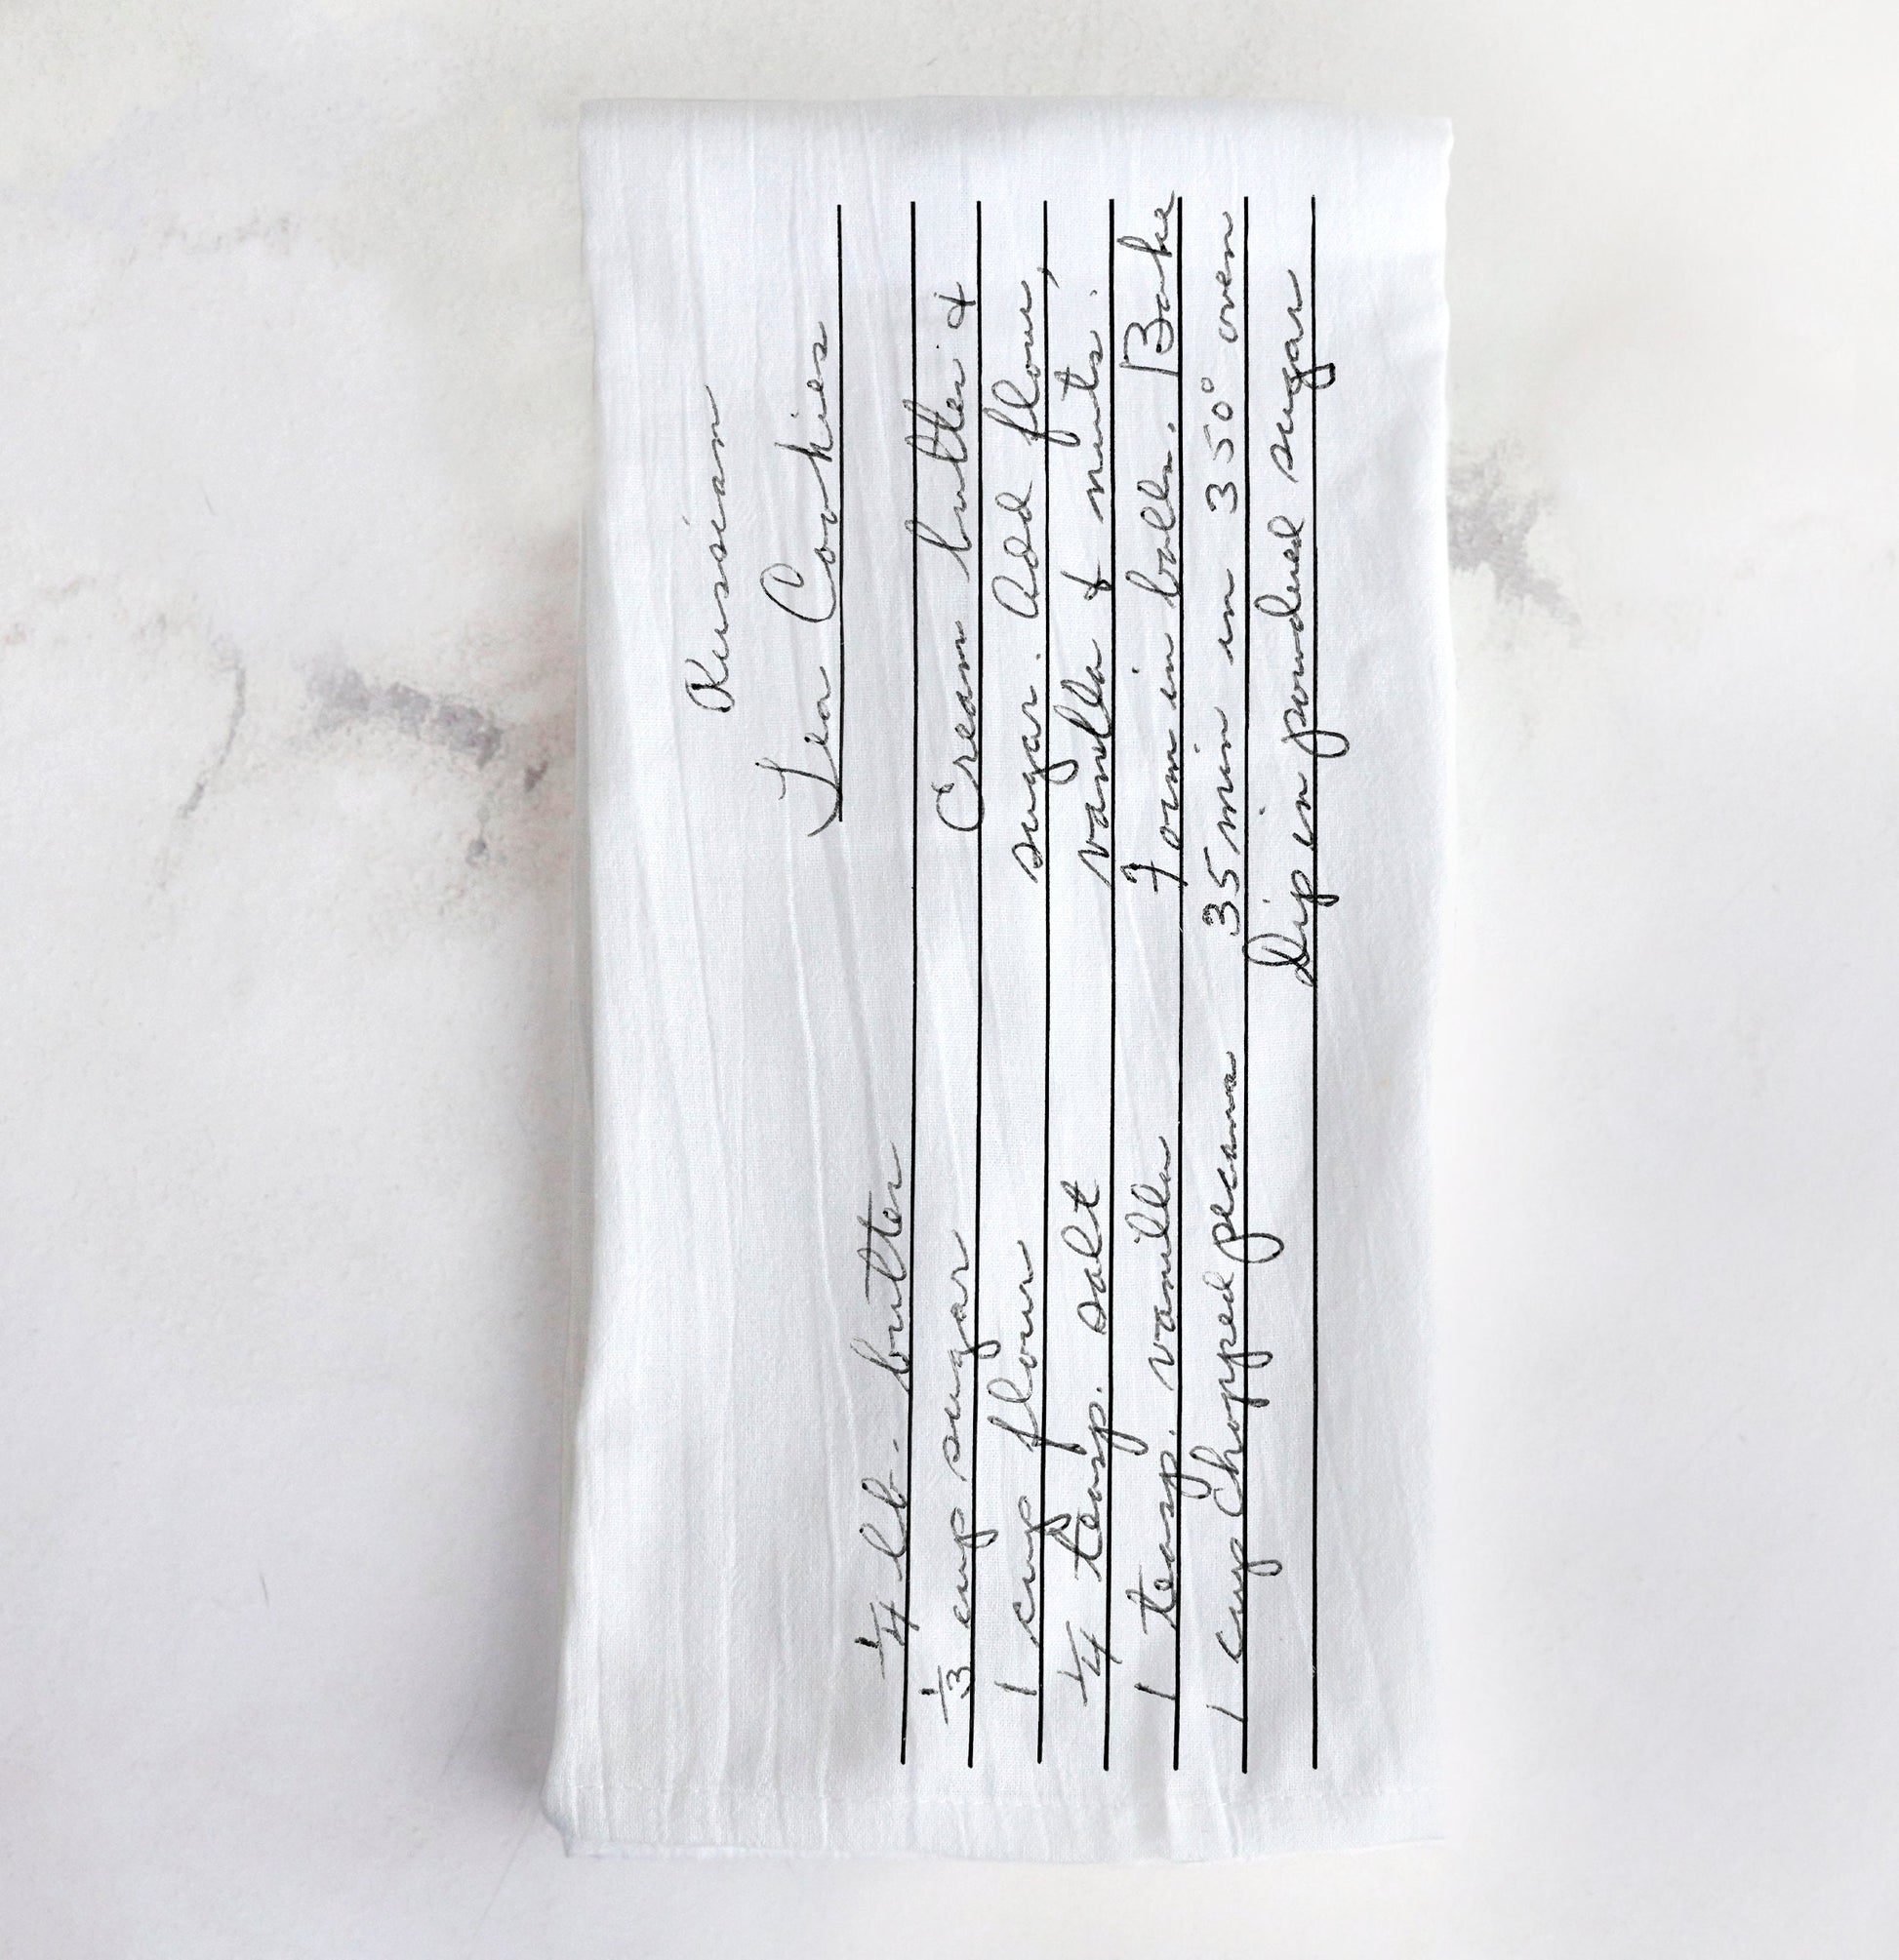 Russian
Tea Cookies
1/4 lb. butter
1/3 cup sugar Cream butter &
1 cup flour sugar. Add flour,
1/4 teasp. salt vanilla & nuts.
1 teasp. vanilla Form in balls. Bake
1 cup chopped pecans 35 min in 350° oven
Dip in powdered sugar